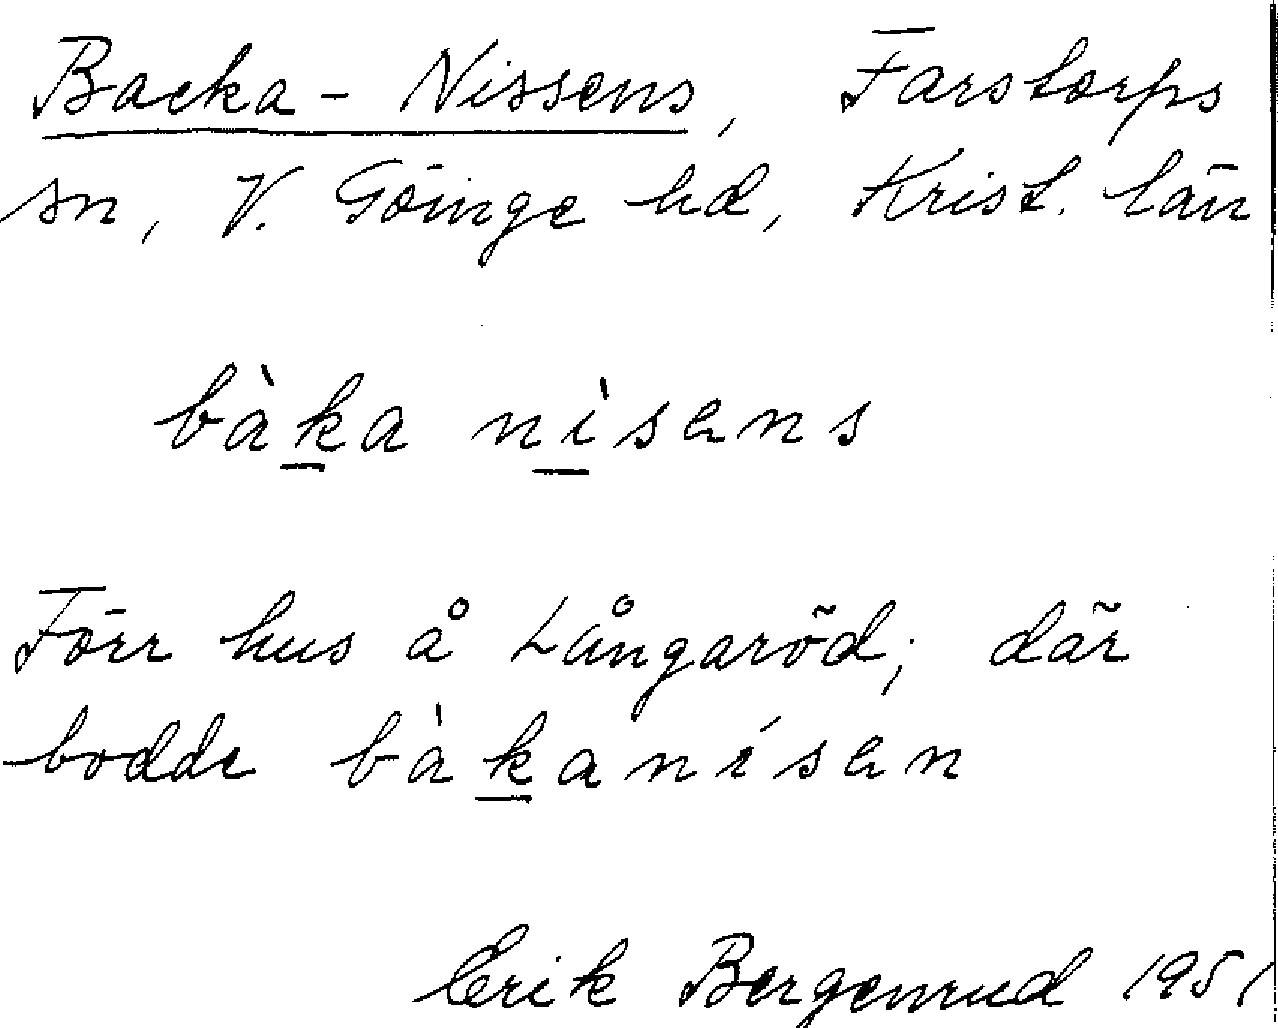 Backa-Nissens, Farstorps
sn, V. Göinge hd, Krist. län
bàka nìsens
Förr hus å Långaröd; där
bodde bàkanísen
Erik Bergenrud 1951